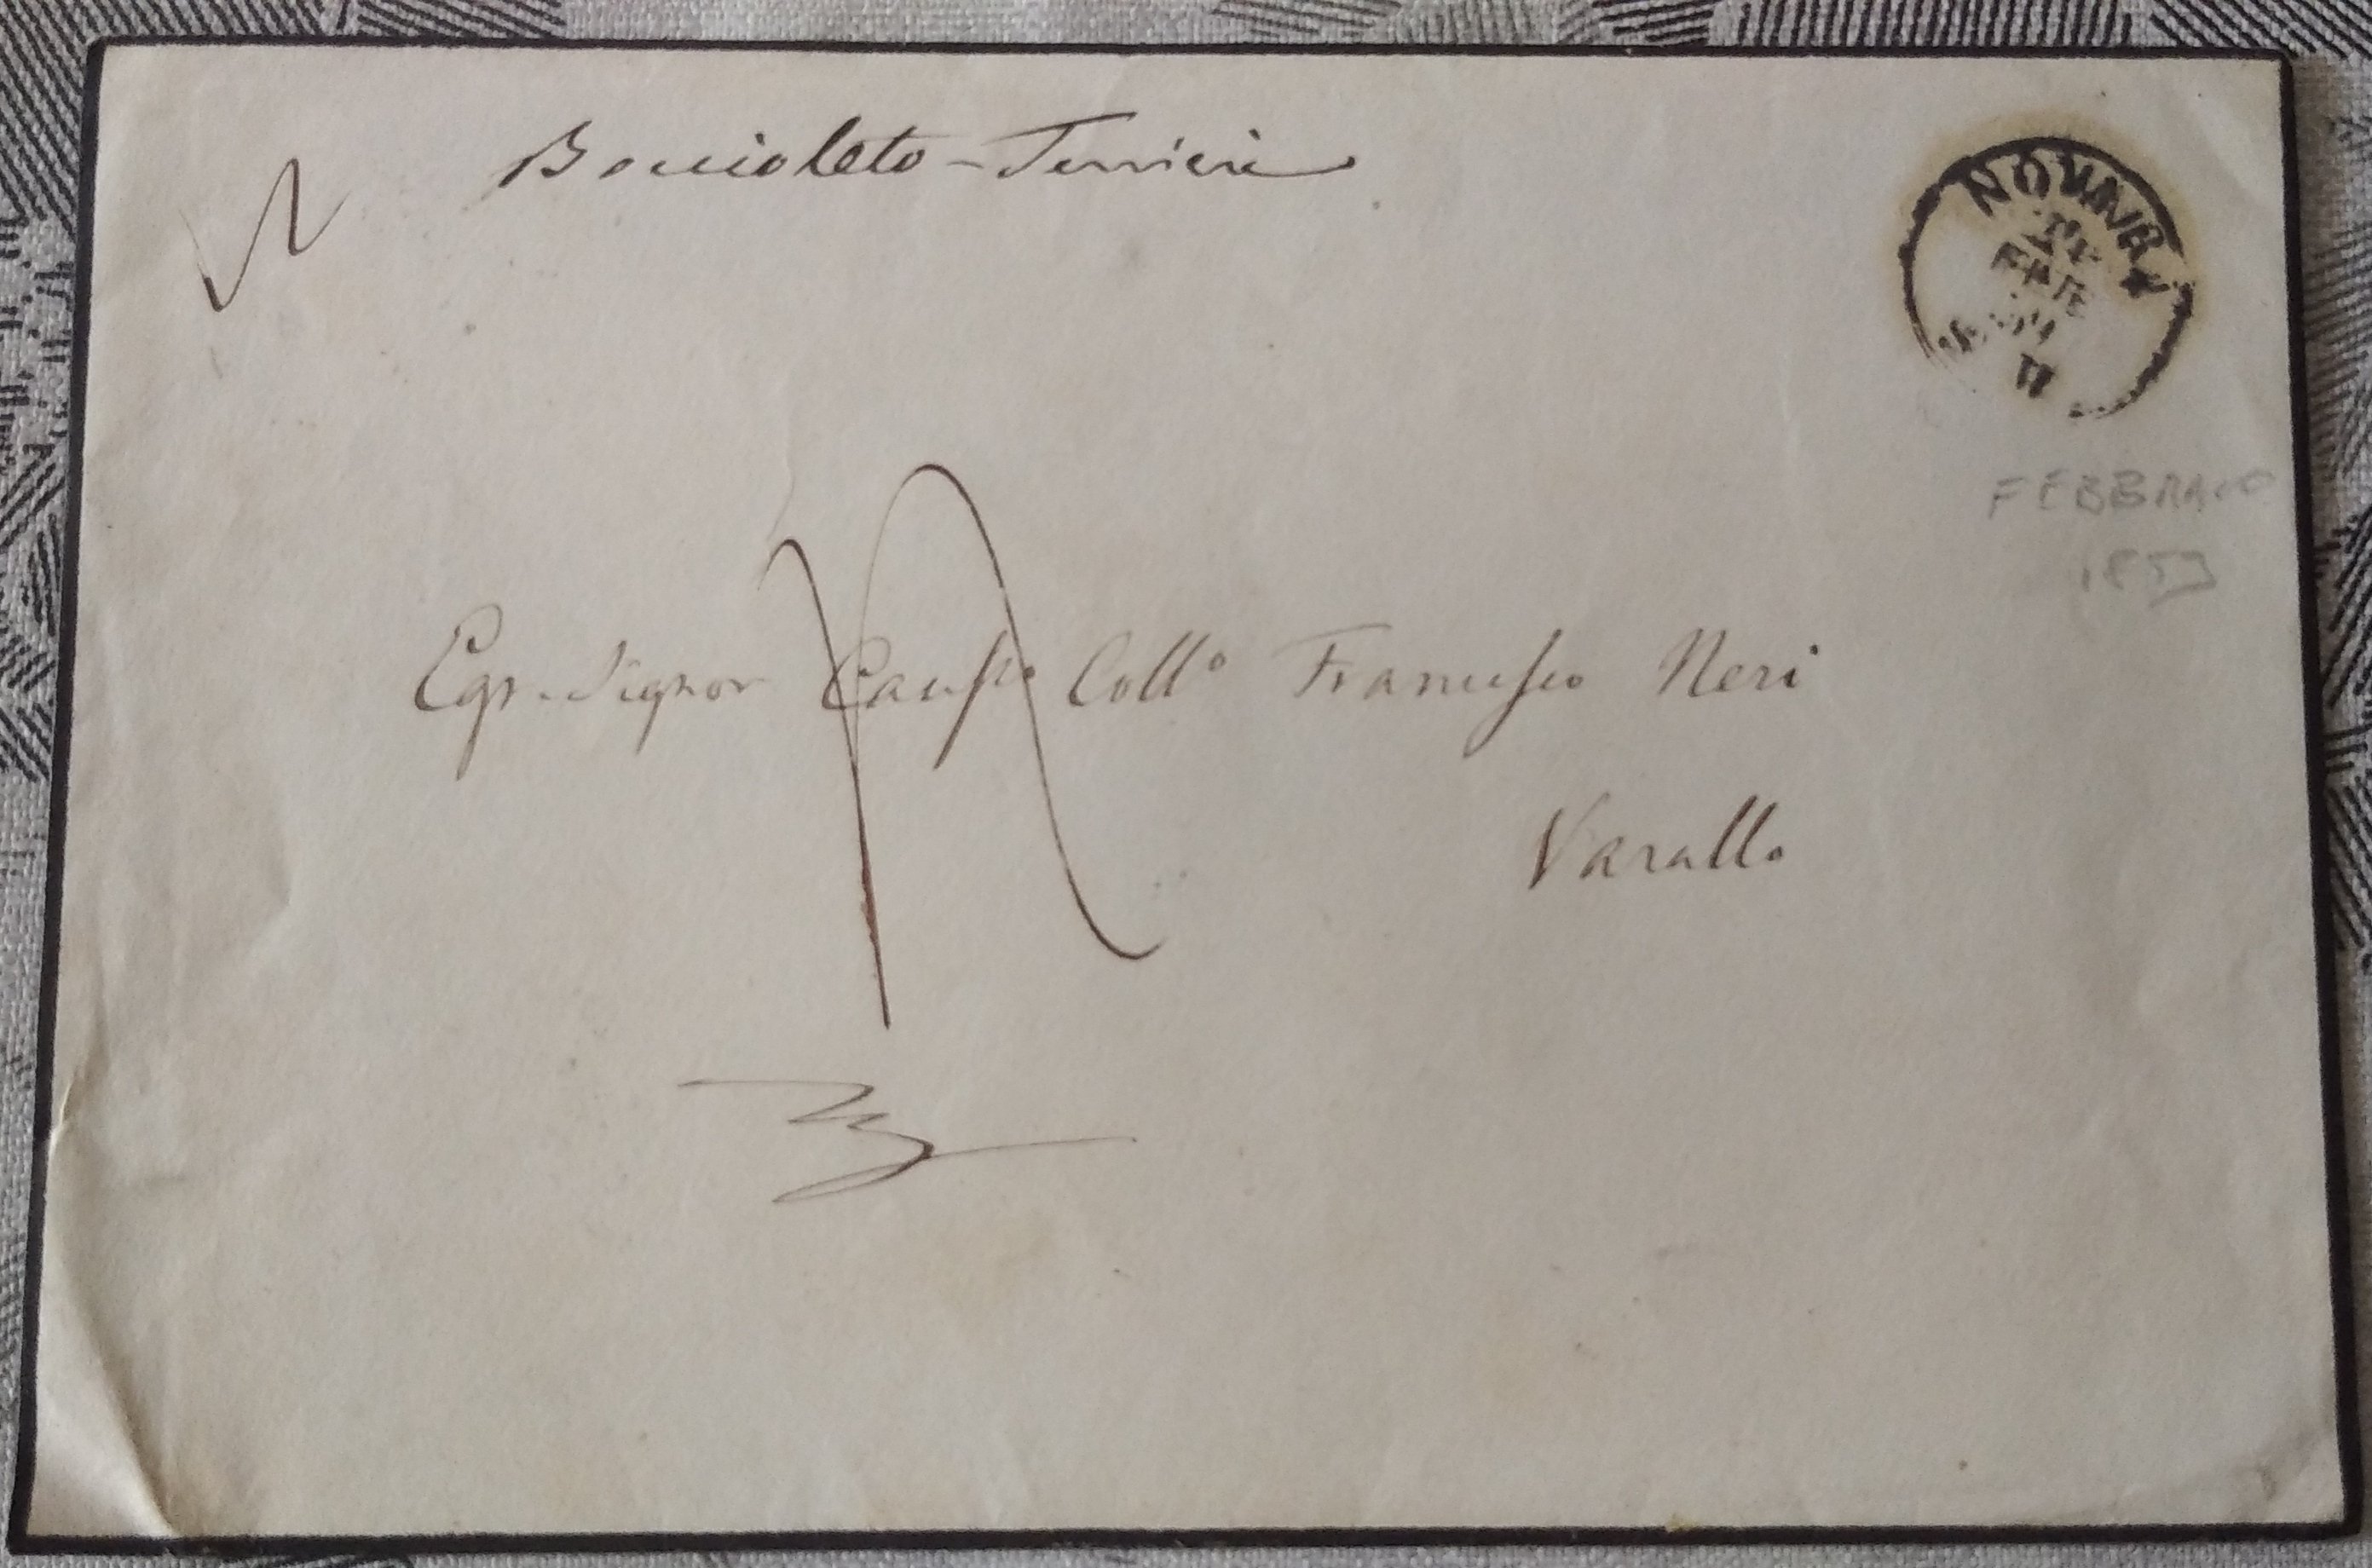 Boccioleto - Ferriere
NOVARA
FEB
FEBBRAIO
Egr. Signor Caus.o Coll.o Francesco Neri
Varallo